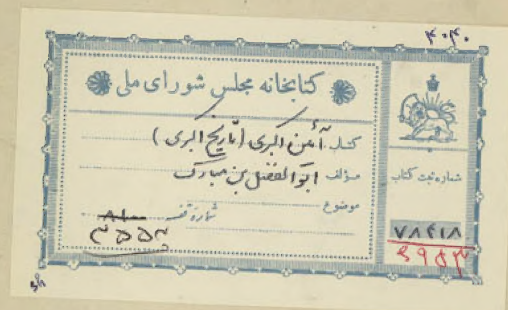 ۴۰۴۰
کتابخانه مجلس شورای ملی
کتاب آئین اکبری (تاریخ اکبری)
مؤلف ابوالفضل بن مبارک
موضوع
شماره قفسه
۳۵۵۳
شماره ثبت کتاب
۷۸۴۱۸